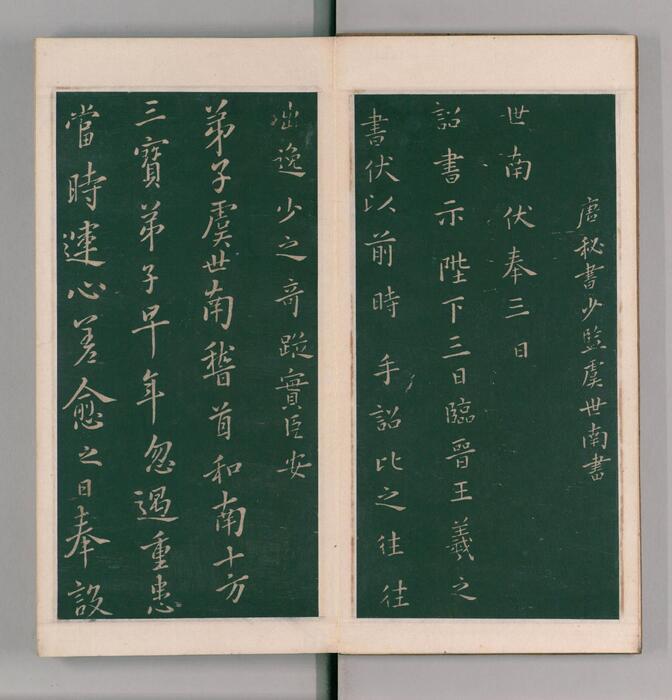 唐秘書少監虞世南書
世南伏奉三日
詔書示陛下三日臨晉王羲之
書伏以前時手詔比之往往
逸少之奇蹤實臣安
弟子虞世南稽首和南十方
三寶弟子早年忽遇重患
當時運心差愈之日奉設